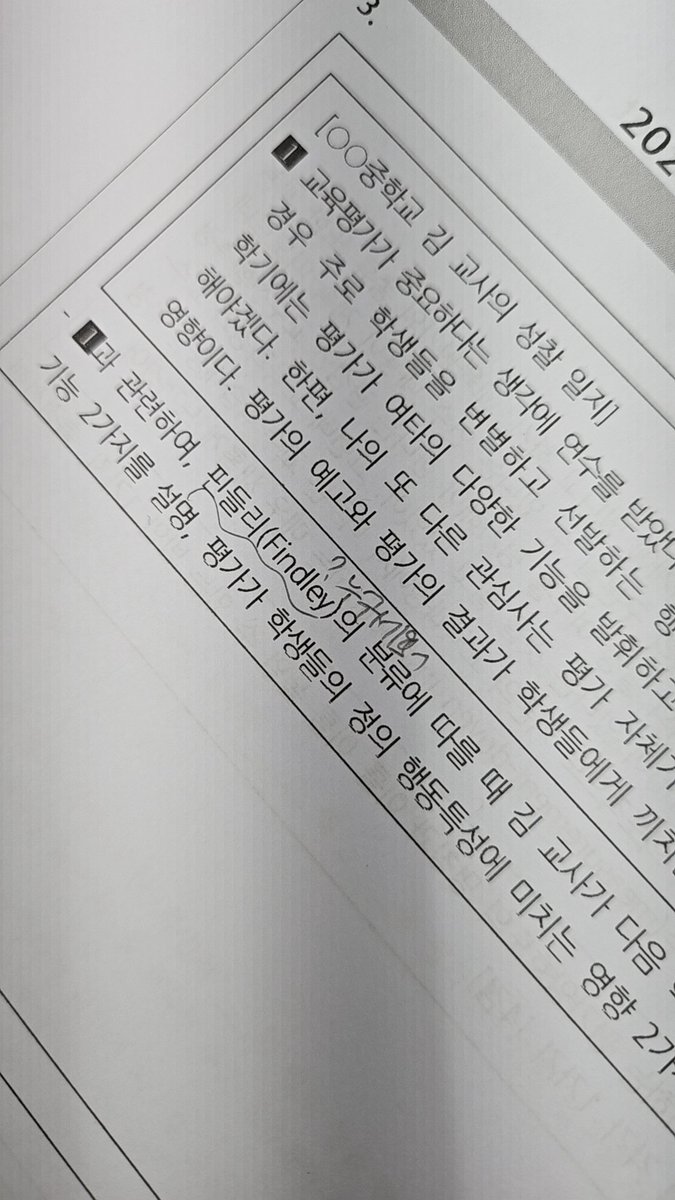 3.
202
[○○중학교 김 교사의 성찰 일지]
1 교육평가가 중요하다는 생각에 연수를 받았
경우 주로 학생들을 변별하고 선발하는
학기에는 평가가 여타의 다양한 기능을 발휘하고
해야겠다. 한편, 나의 또 다른 관심사는 평가 자체가
영향이다. 평가의 예고와 평가의 결과가 학생들에게 끼치
? 누구세요
1과 관련하여, 핀들리(Findley)의 분류에 따를 때 김 교사가 다음
기능 2가지를 설명, 평가가 학생들의 정의 행동특성에 미치는 영향 2가